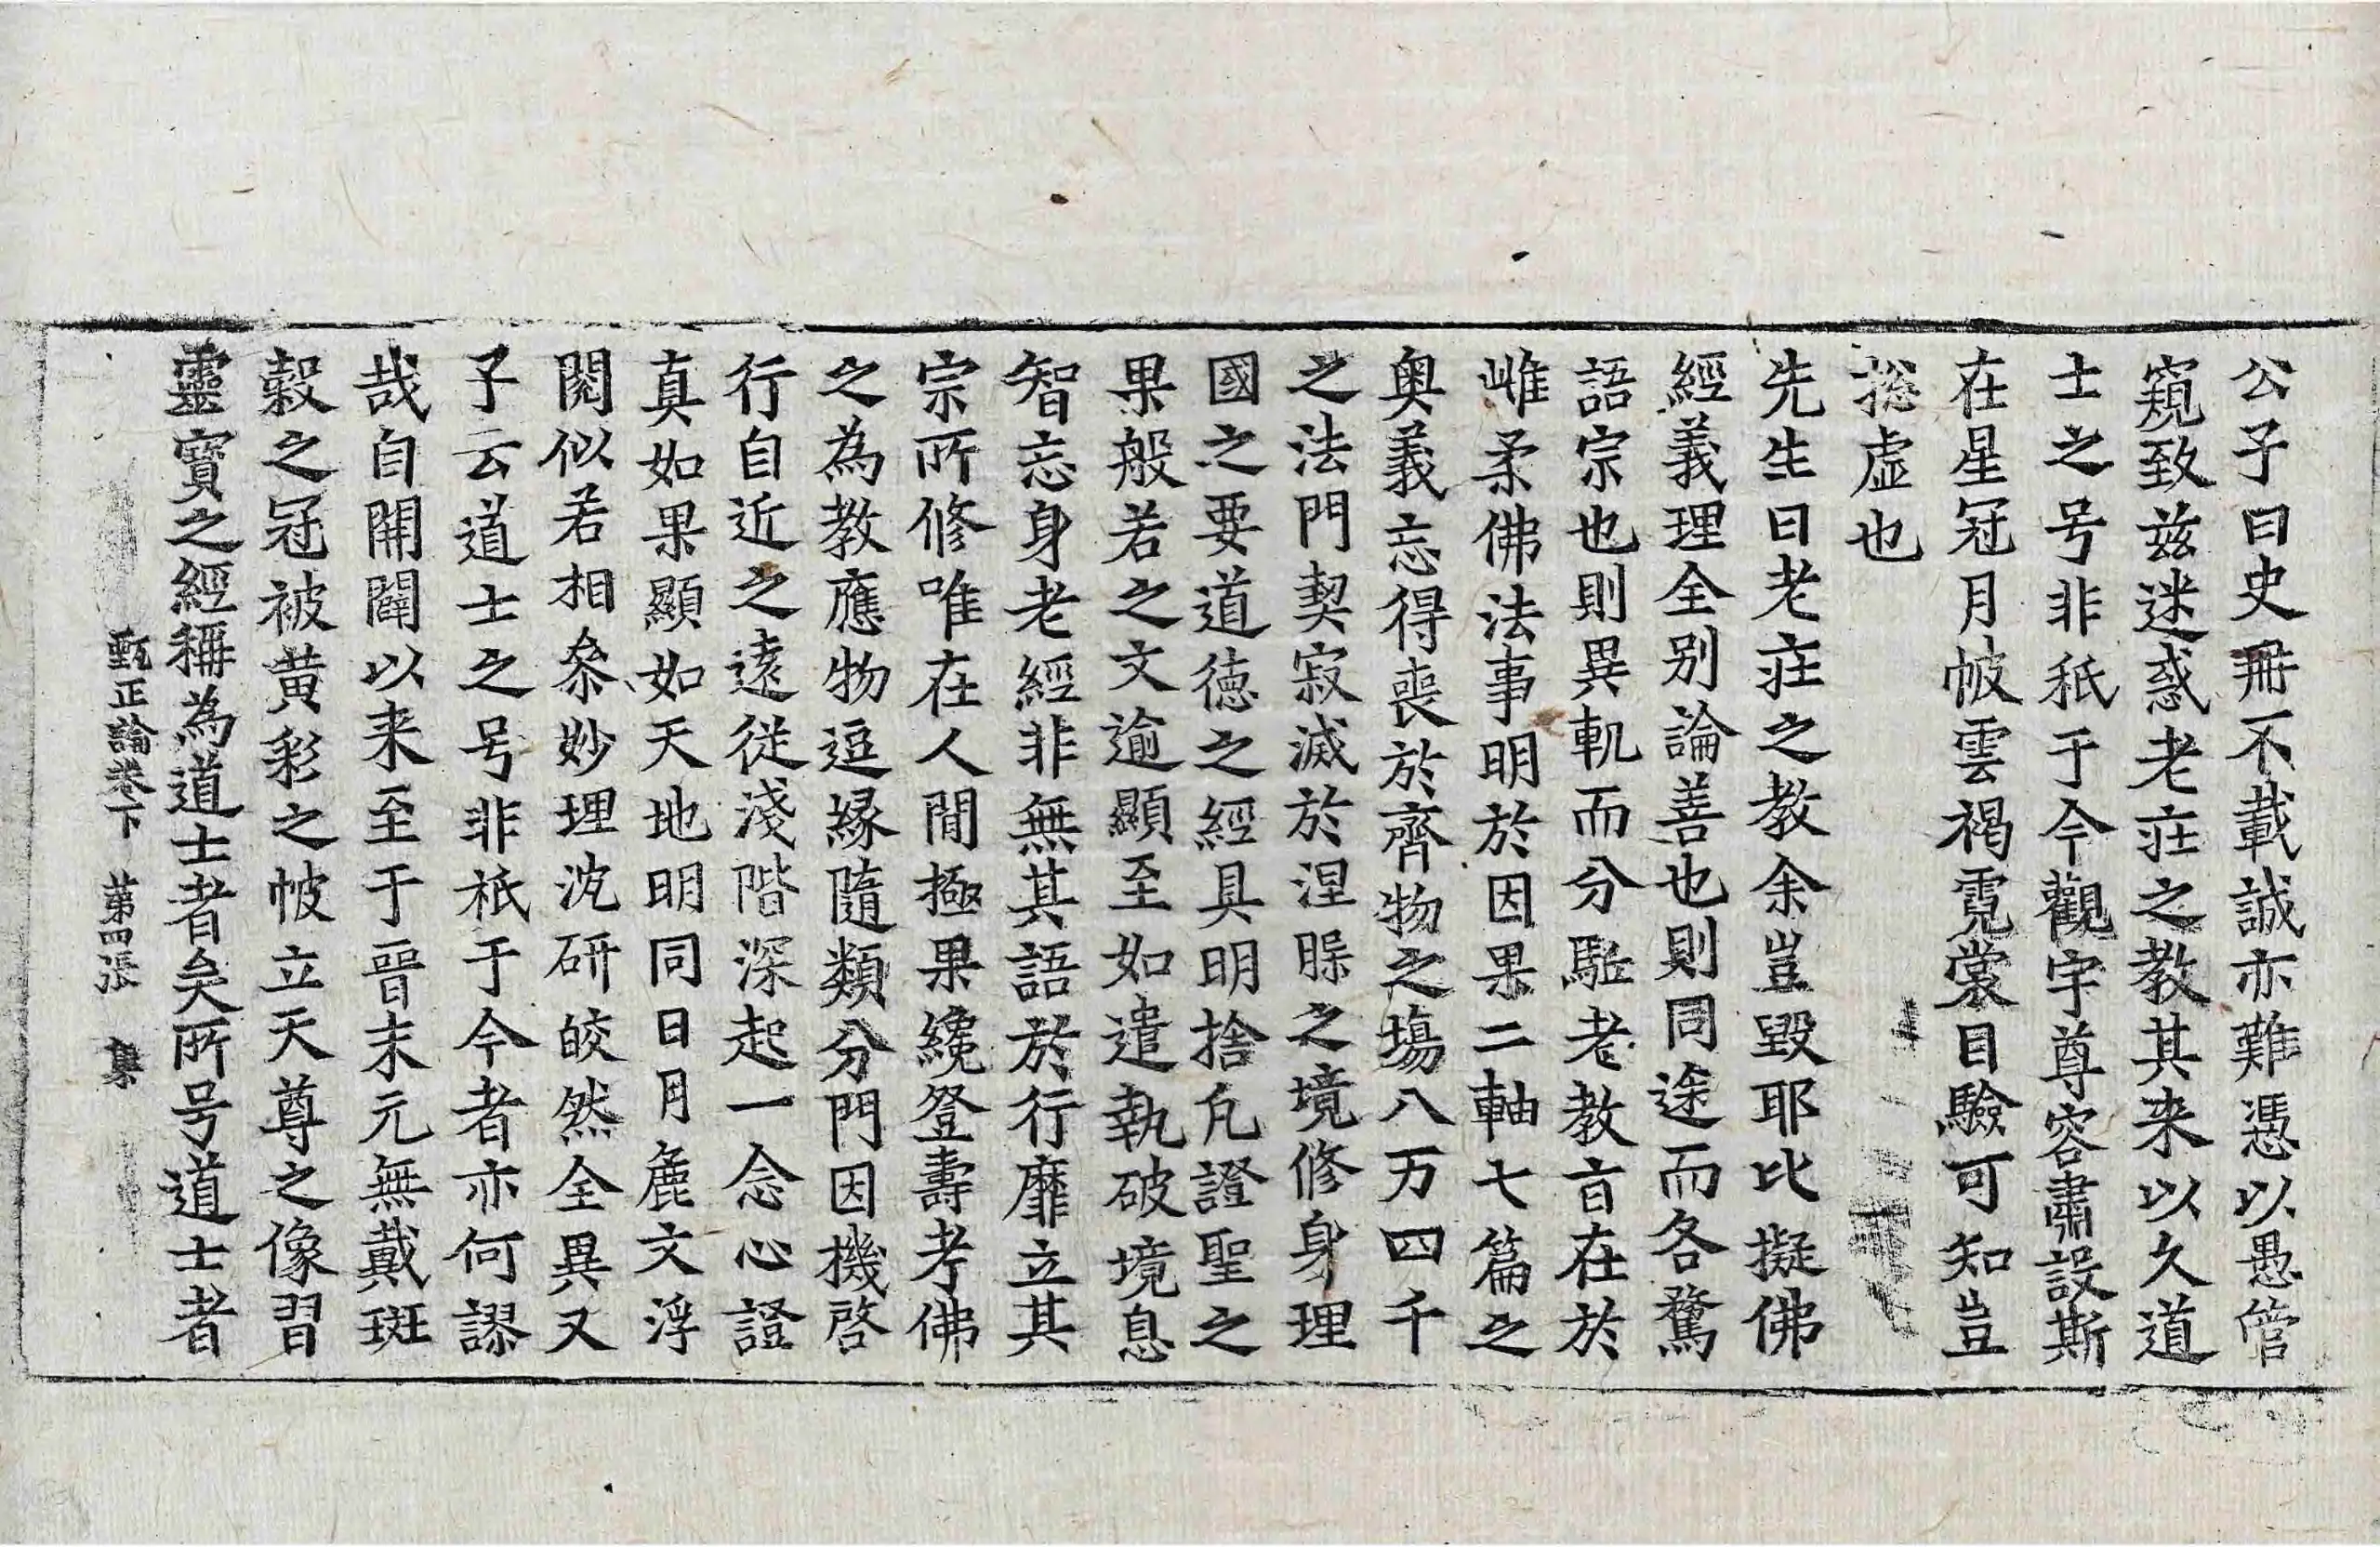 公子曰史冊不載誠亦難憑以愚管
窺致兹迷惑老莊之教其来以久道
士之号非秖于今觀宇尊容肅設斯
在星冠月帔雲褐霓裳目驗可知豈
捴虛也
先生曰老莊之教余豈毀耶比擬佛
經義理全别論善也則同途而各騖
語宗也則異軌而分駈老教㫖在於
雌柔佛法事明於因果二軸七篇之
奧義忘得喪於齊物之場八万四千
之法門契寂滅於涅槃之境修身理
國之要道德之經具明捨凡證聖之
果般若之文逾顯至如遣執破境息
智忘身老經非無其語於行靡立其
宗所修唯在人間極果纔登壽考佛
之為教應物逗緣隨類分門因機啓
行自近之遠從淺階深起一念心證
真如果顯如天地明同日月麁文浮
閱似若相叅妙理沈研皎然全異又
子云道士之号非秖于今者亦何謬
哉自開闢以来至于晉末元無戴斑
縠之冠被黄彩之帔立天尊之像習
靈寶之經稱為道士者矣所号道士者
甄正論卷下 第四張 集